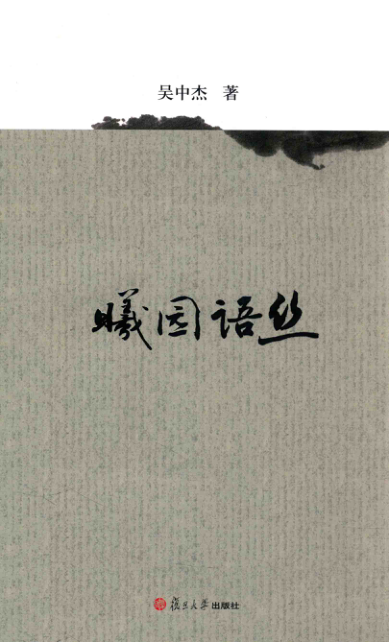 吴中杰 著
曦园语丝
復旦大學出版社